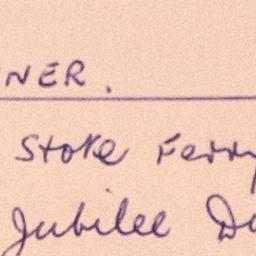 NER.
Stoke Ferry
Jubilee